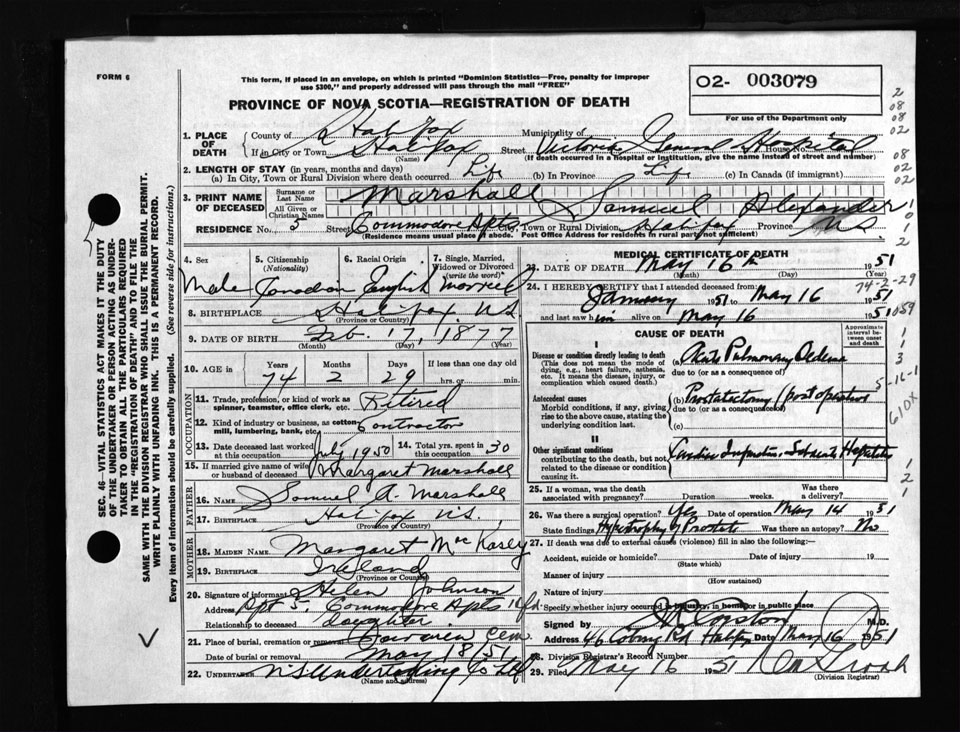 FORM 6
This form, if placed in an envelope, on which is printed "Dominion Statistics—Free, penalty for improper
use $300," and properly addressed will pass through the mail "FREE"
02- 003079
For use of the Department only
PROVINCE OF NOVA SCOTIA—REGISTRATION OF DEATH
1. PLACE OF DEATH County of Halifax Municipality of
If in City or Town Halifax Street Victoria General Hospital House No.
(Name) (If death occurred in a hospital or institution, give the name instead of street and number)
2. LENGTH OF STAY (in years, months and days)
(a) In City, Town or Rural Division where death occurred Life (b) In Province Life (c) In Canada (if immigrant)
3. PRINT NAME OF DECEASED Surname or Last Name Marshall All Given or Christian Names Samuel Alexander
RESIDENCE No. 5 Street Commodore Apts City, Town or Rural Division Halifax Province N.S.
(Residence means usual place of abode. Post Office Address for residents in rural part not sufficient)
4. Sex 5. Citizenship (Nationality) 6. Racial Origin 7. Single, Married, Widowed or Divorced (write the word)
Male Canadian English Married
8. BIRTHPLACE Halifax, N.S.
(Province or Country)
9. DATE OF BIRTH Feb. 17, 1877
(Month) (Day) (Year)
10. AGE in Years Months Days If less than one day old
74 2 29 hrs. or min.
OCCUPATION
11. Trade, profession, or kind of work as spinner, teamster, office clerk, etc. Retired
12. Kind of industry or business, as cotton mill, lumbering, bank, etc. Contractor
13. Date deceased last worked at this occupation July 1950 14. Total yrs. spent in this occupation 30
15. If married give name of wife or husband of deceased Margaret Marshall
FATHER
16. NAME Samuel A. Marshall
17. BIRTHPLACE Halifax N.S.
(Province or Country)
MOTHER
18. MAIDEN NAME Margaret
19. BIRTHPLACE Ireland
(Province or Country)
20. Signature of informant Helen Johnson
Address Apt 5, Commodore Apts Hfx
Relationship to deceased daughter
21. Place of burial, cremation or removal Cem.
Date of burial or removal May 18/51
22. UNDERTAKER N.S. Undertaking Co Ltd
(Name and address)
MEDICAL CERTIFICATE OF DEATH
23. DATE OF DEATH May 16th 1951
(Month) (Day) (Year)
74-2-29
24. I HEREBY CERTIFY that I attended deceased from:
January 1951 to May 16 1951
and last saw him alive on May 16 1951
CAUSE OF DEATH
Approximate interval between onset and death
I
Disease or condition directly leading to death
(This does not mean the mode of dying, e.g., heart failure, asthenia, etc. It means the disease, injury, or complication which caused death.)
(a) Acute Pulmonary Oedema
due to (or as a consequence of)
Antecedent causes
Morbid conditions, if any, giving rise to the above cause, stating the underlying condition last.
(b) Prostatectomy (post operative)
due to (or as a consequence of)
(c)
5-16-1
610X
II
Other significant conditions
contributing to the death, but not related to the disease or condition causing it.
Hepatitis
25. If a woman, was the death associated with pregnancy? Duration weeks. Was there a delivery?
26. Was there a surgical operation? Yes Date of operation May 14 1951
State findings Hypertrophy of Prostate Was there an autopsy? No
27. If death was due to external causes (violence) fill in also the following:
Accident, suicide or homicide? Date of injury 19
(State which)
Manner of injury
(How sustained)
Nature of injury
Specify whether injury occurred in industry, in home or in public place
Signed by M.D.
Address 46 Coburg Rd Halifax Date May 16 1951
28. Division Registrar's Record Number
29. Filed May 16 1951
(Division Registrar)
SEC. 46—VITAL STATISTICS ACT MAKES IT THE DUTY
OF THE UNDERTAKER OR PERSON ACTING AS UNDER-
TAKER TO OBTAIN ALL THE PARTICULARS REQUIRED
IN THE "REGISTRATION OF DEATH" AND TO FILE IT
SAME WITH THE DIVISION REGISTRAR WHO SHALL ISSUE THE BURIAL PERMIT.
WRITE PLAINLY WITH UNFADING INK. THIS IS A PERMANENT RECORD.
Every item of information should be carefully supplied. (See reverse side for instructions.)